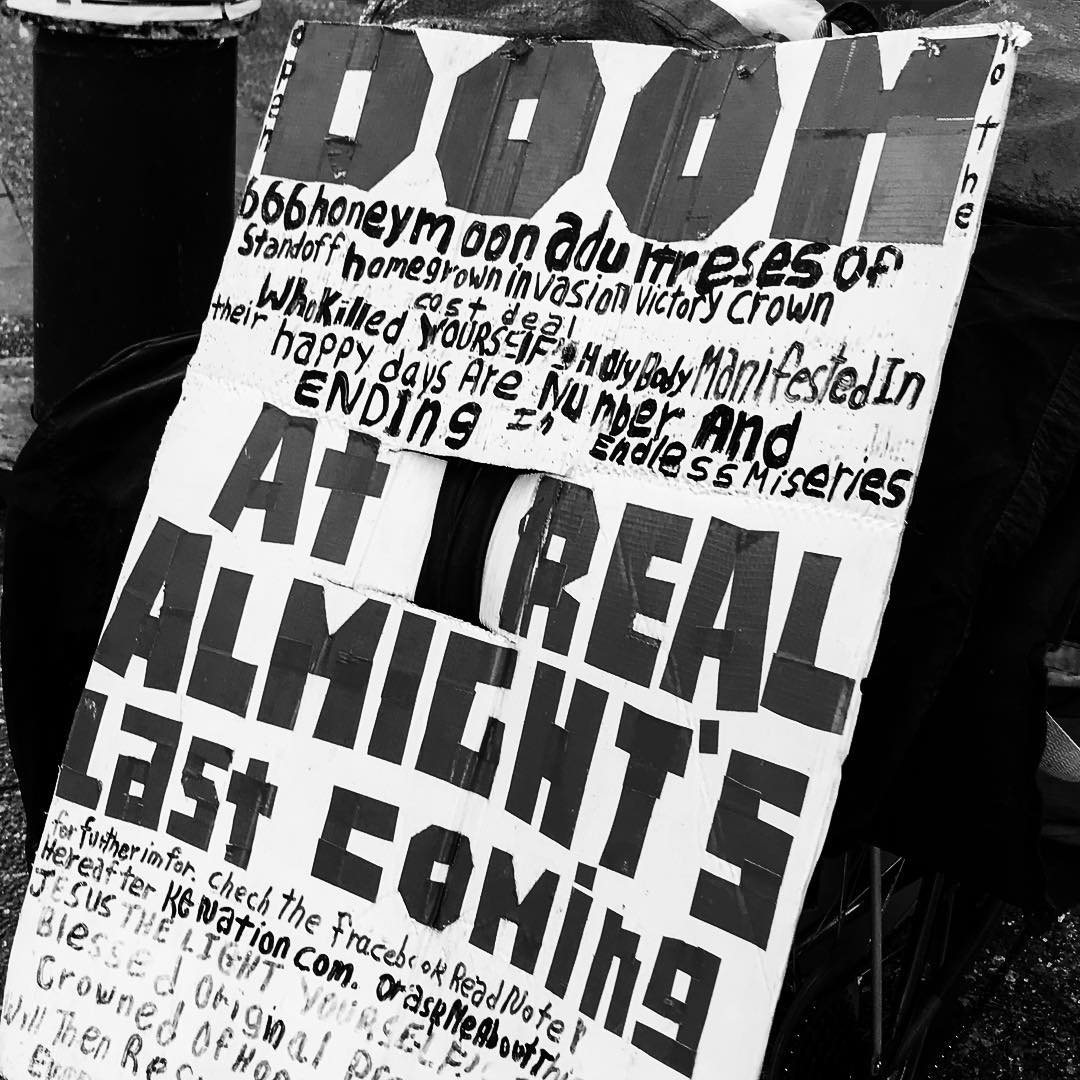 open
DOOM
to the
666honeymoon adultreses of
Standoff homegrown invasion victory crown
cast deal
Who Killed YOURSELF's Holy Body Manifested In
their happy days Are Number And
ENDINg In Endless Miseries
At REAL
ALMIGHT'S
Last coming
for further infor. check the fracebook Read Note
Hereafter KGNation com. Or ask Me About
JESUS THE LIGHT YOURSELF!
Blessed Original
Crowned Of
Will Then